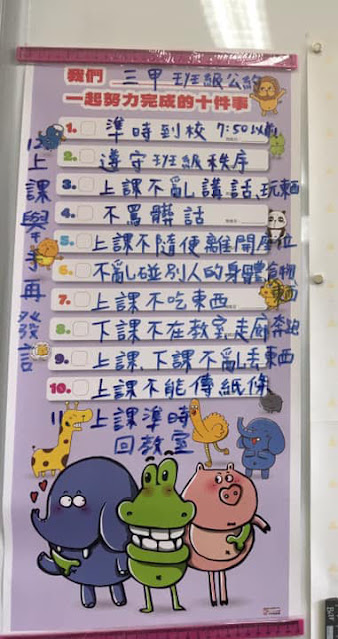 我們 三甲班級公約
一起努力完成的十件事
1. 準時到校 7:50以前
2. 遵守班級秩序
3. 上課不亂講話、玩東西
4. 不罵髒話
5. 上課不隨便離開座位
6. 不亂碰別人的身體、食物
東西
7. 上課不吃東西
8. 下課不在教室、走廊奔跑
9. 上課、下課不亂丟東西
10. 上課不能傳紙條
11. 上課準時
回教室
12. 上課舉手再發言